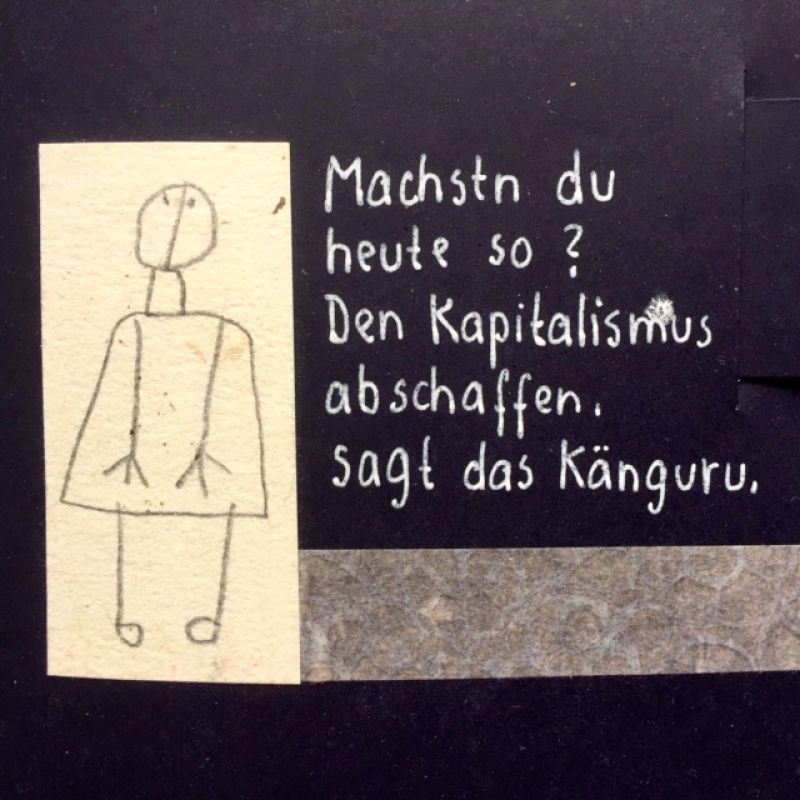 Machstn du
heute so?
Den Kapitalismus
abschaffen.
sagt das Känguru.